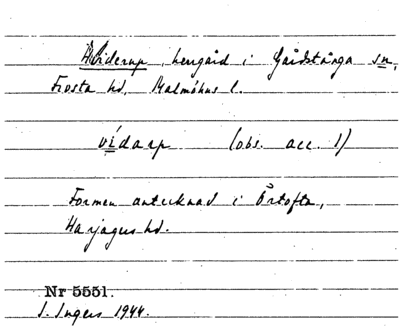 Hviderup, herrgård i Gårdstånga sn,
Frosta hd, Malmöhus l.
vídarp (obs. acc. 1)
Formen antecknad i Örtofta,
Harjagers hd.
Nr 5551.
I. Ingers 1944.